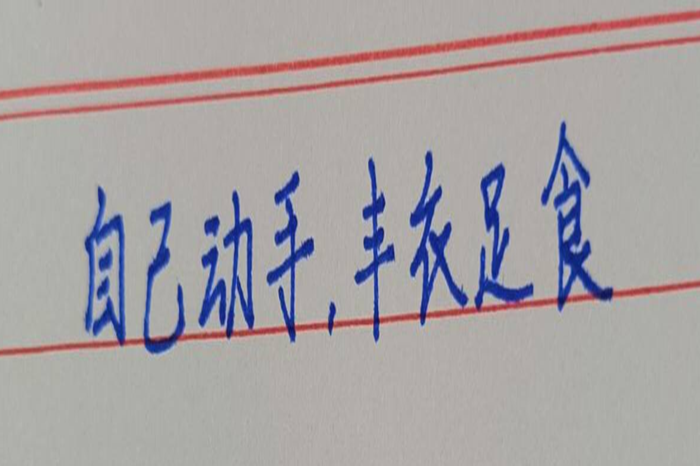 自己动手,丰衣足食